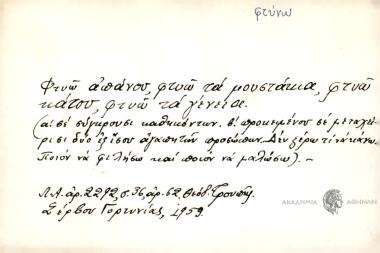 φτύνω
Φτυῶ ἀπάνου, φτυῶ τά μουστάκια, φτυῶ
κάτου, φτυῶ τά γένεια.
(α! σέ σύγκρουσι καθηκόντων. β! προκειμένου σέ μεταχεί
ρισι δύο ἐξίσου ἀγαπητῶν προσώπων. Δέν ξέρω τί νά κάνω.
Ποιόν νά φιλήσω καί ποιόν νά μαλώσω). –
Λ.Α. ἀρ. 2292, σ. 36, ἀρ. 62, Θεόδ. Τρουπῆς,
Σέρβου Γορτυνίας, 1959.
ΑΚΑΔΗΜΙΑ ΑΘΗΝΩΝ